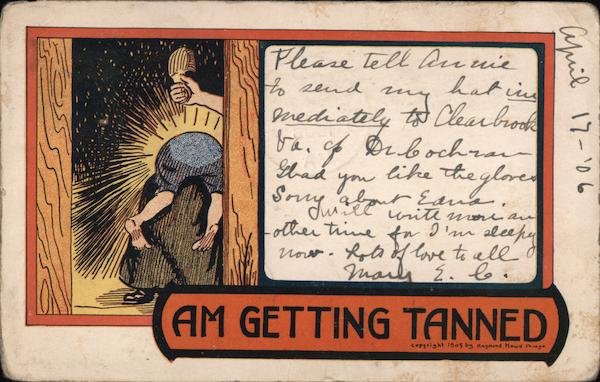 Please tell Annie
to send my hat im
mediately to Clearbrook
Va. c/o Dr. Cochran
Glad you like the gloves
Sorry about Edna.
I will write more an
other time for I'm sleepy
now. Lots of love to all
Mary E. C.
April 17-'06
AM GETTING TANNED
copyright 1905 by Raymond Howe Chicago